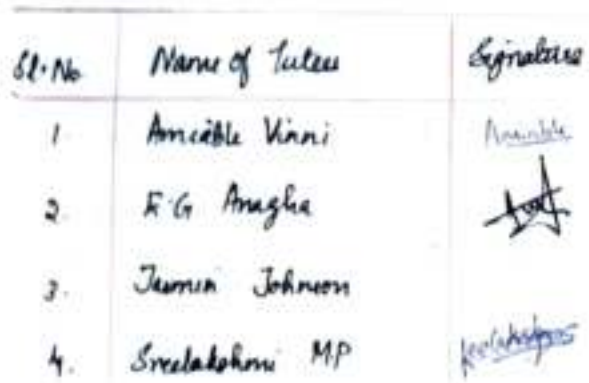 Sl.No Name of Tutees Signature
1 Amiable Vinni Amiable
2. K G Anagha
3. Jasmin Johnson
4. Sreelakshmi MP Sreelakshmi